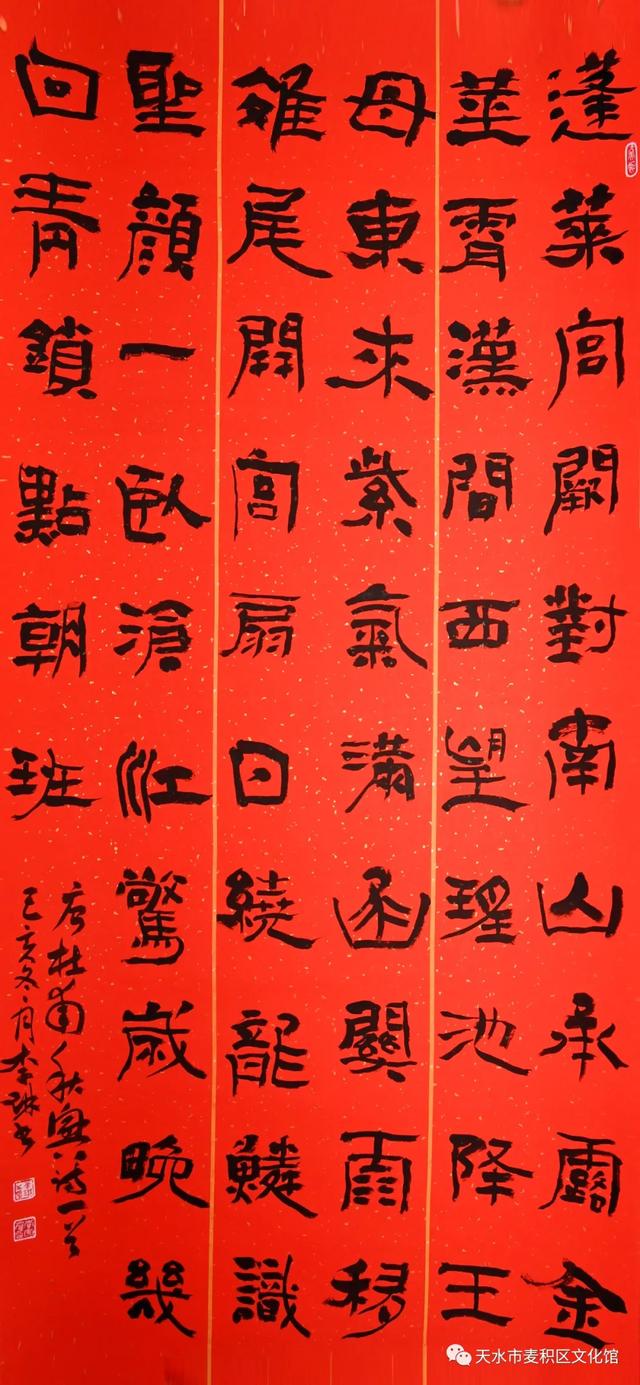 蓬萊宮闕對南山承露金
莖霄漢間西望瑤池降王
母東來紫氣滿函關雨移
雉尾開宮扇日繞龍鱗識
聖顏一臥滄江驚歲晚幾
回青鎖點朝班
唐杜甫秋興八詩一首
己亥冬月李琳書
天水市麦积区文化馆